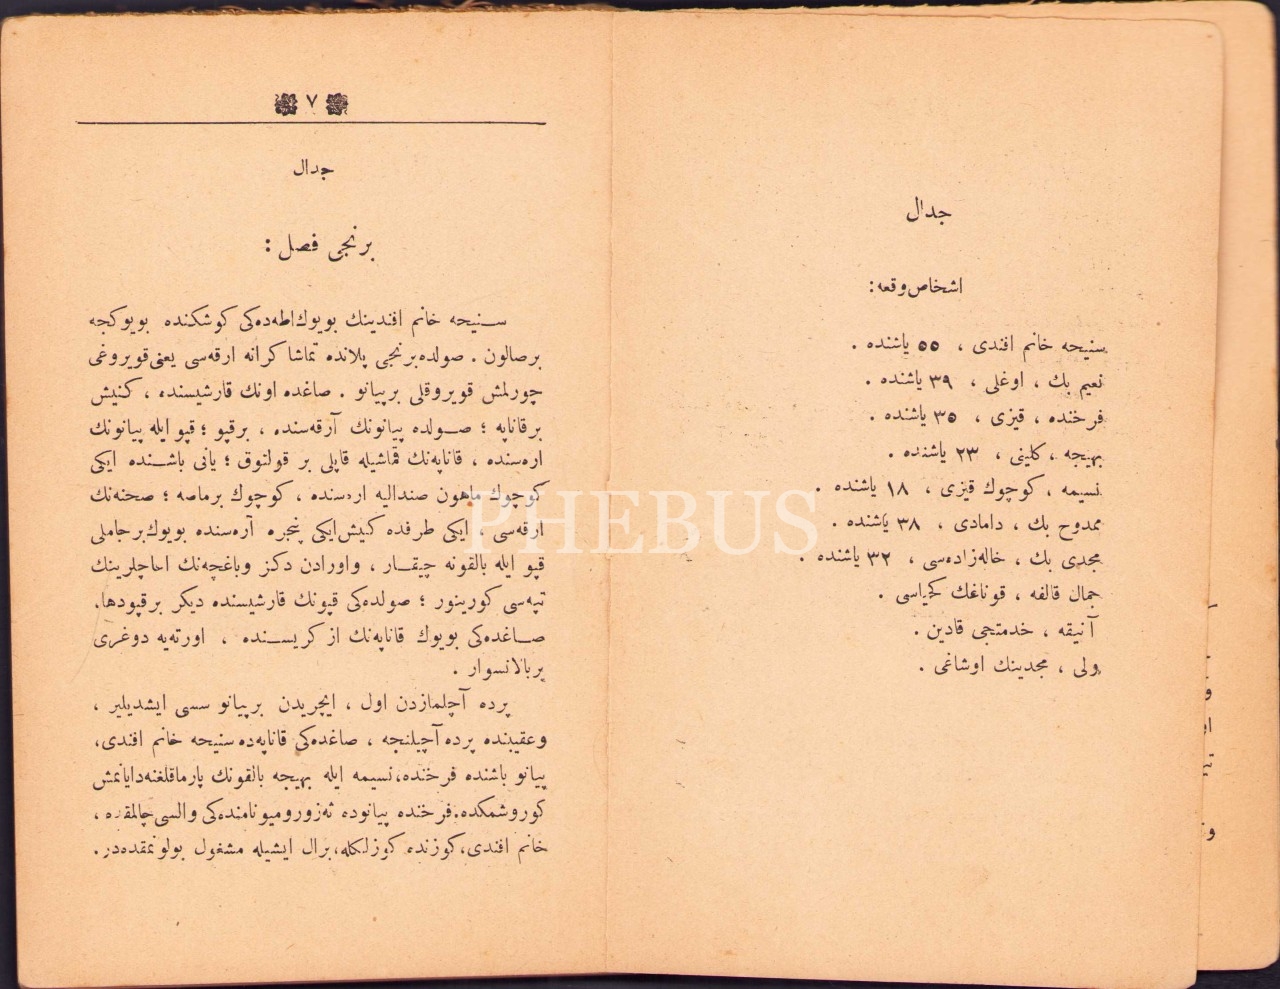 جدال
اشخاص وقعه :
سنیحه خانم افندی ، ٥٥ یاشنده .
نعیم بك ، اوغلی ، ٣٩ یاشنده .
فرخنده ، قیزی ، ٣٥ یاشنده .
بهیجه ، كلینی ، ٢٣ یاشنده .
نسیمه ، كوچوك قیزی ، ١٨ یاشنده .
ممدوح بك ، دامادی ، ٣٨ یاشنده .
مجدی بك ، خاله‌زاده‌سی ، ٣٢ یاشنده .
جمال قالفه ، قوناغك كحیاسی .
آنیقه ، خدمتجی قادین .
ولی ، مجدینك اوشاغی .
٧
جدال
برنجی فصل :
سنیحه خانم افندینك بویوك‌اطه‌ده‌كی كوشكنده بویوكجه
برصالون . صولده‌برنجی پلانده تماشا كرانه ارقه‌سی یعنی قویروغی
چورلمش قویروقلی برپیانو . صاغده اونك قارشیسنده ، كنیش
برقاناپه ؛ صولده پیانونك آرقه‌سنده ، برقپو ؛ قپو ایله پیانونك
اره‌سنده ، قاناپه‌نك قماشیله قاپلی بر قولتوق ؛ یانی باشنده ایكی
كوچوك ماهون صندالیه اره‌سنده ، كوچوك برماصه ؛ صحنه‌نك
ارقه‌سی ، ایكی طرفده كنیش‌ایكی پنجره آره‌سنده بویوك‌برجاملی
قپو ایله بالقونه چیقار ، واورادن دكز وباغچه‌نك اغاچلرینك
تپه‌سی كورینور ؛ صولده‌كی قپونك قارشیسنده دیكر برقپودها.
صاغده‌كی بویوك قاناپه‌نك از كریسنده ، اورته‌یه دوغری
بربالانسوار .
پرده آچلمازدن اول ، ایچریدن برپیانو سسی ایشدیلیر ،
وعقبنده پرده آچیلنجه ، صاغده‌كی قاناپه‌ده سنیحه خانم افندی،
پیانو باشنده فرخنده،نسیمه ایله بهیجه بالقونك پارماقلغنه‌دایانمش
كوروشمكده.فرخنده پیانوده ئه‌زورومیونامنده‌كی والسی چالمقده ،
خانم افندی،كوزنده كوزلكله،برال ایشیله مشغول بولونمقده‌در.
PHEBUS